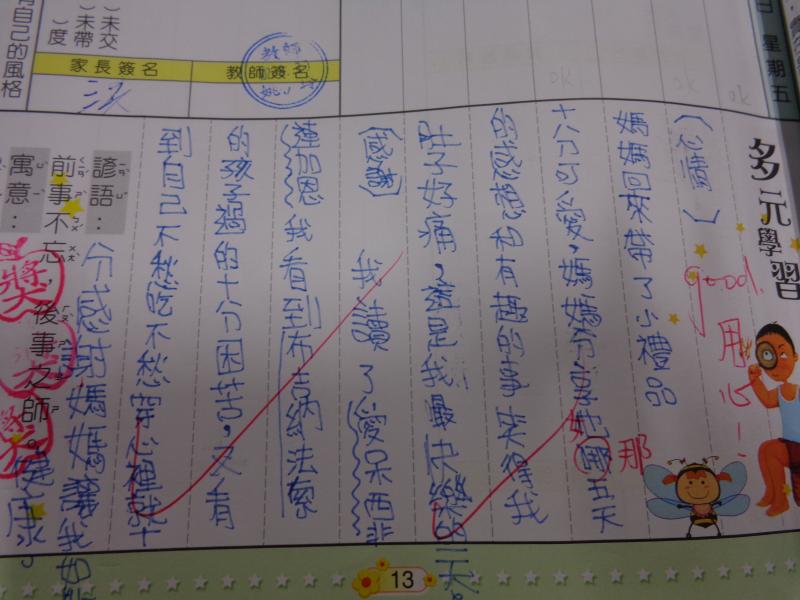 日 星期五
ok
ok
ok
多元學習
good!
用心!
媽媽回來帶了小禮品
十分可愛,媽媽分享她五天
那
的感想和有趣的事笑得我
肚子好痛,這是我最快樂天。
(感謝) 我讀了愛呆西非
連加恩我看到布吉納法索
的孩子過的十分困苦,又看
到自己不愁吃不愁穿心裡就十
分感謝媽媽讓我如健康。
諺語:
前事不忘,後事之師。
寓意:
獎
)未交
)未帶
)度
家長簽名
教師簽名
教師
有自己的風格
13